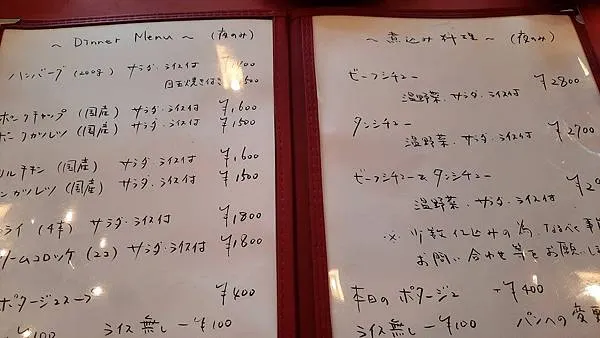 ~ Dinner Menu ~ (夜のみ)
ハンバーグ (200g) サラダ・ライス付
目玉焼き付き
ポークチャップ (国産) サラダ・ライス付 ¥1,600
ポークカツレツ (国産) サラダ・ライス付 ¥1500
ルチキン (国産) サラダ・ライス付 ¥1,600
ンカツレツ (国産) サラダ・ライス付 ¥1500
ライ (4本) サラダ・ライス付 ¥1800
リームコロッケ (2コ) サラダ・ライス付 ¥1,800
ポタージュスープ ¥400
¥100 ライス無し -¥100
~ 煮込み料理 ~ (夜のみ)
ビーフシチュー ¥2800
温野菜・サラダ・ライス付
タンシチュー ¥2700
温野菜・サラダ・ライス付
ビーフシチュー&タンシチュー
温野菜・サラダ・ライス付
※ 少数仕込みの為、なるべく事
お問い合わせ等をお願いし
本日の ポタージュ -¥400
ライス無し -¥100 パンへの変更